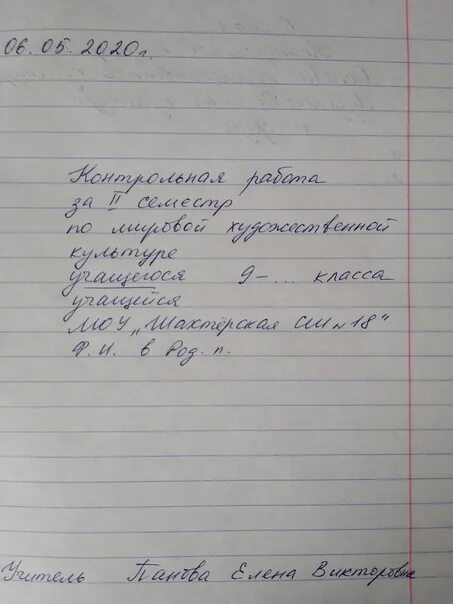 06.05.2020г.
Контрольная работа
за II семестр
по мировой художественной
культуре
учащегося 9-... класса
учащейся
МОУ „Шахтёрская СШ №18”
Ф.И. в Род.п.
Учитель Панова Елена Викторовна